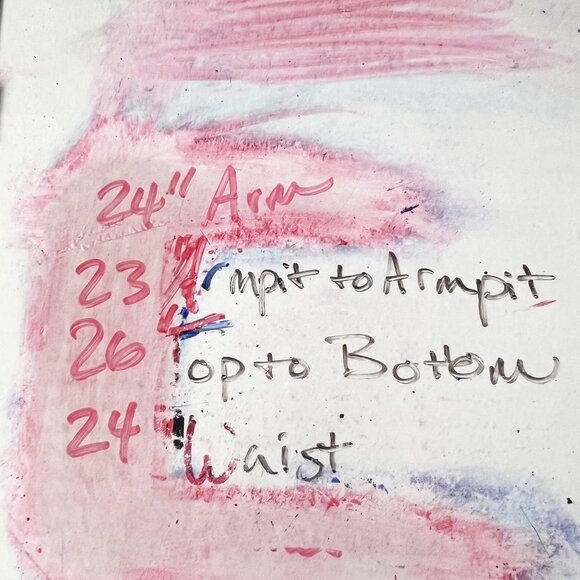 24" Arm
23 Armpit to Armpit
26 Top to Bottom
24 "Waist